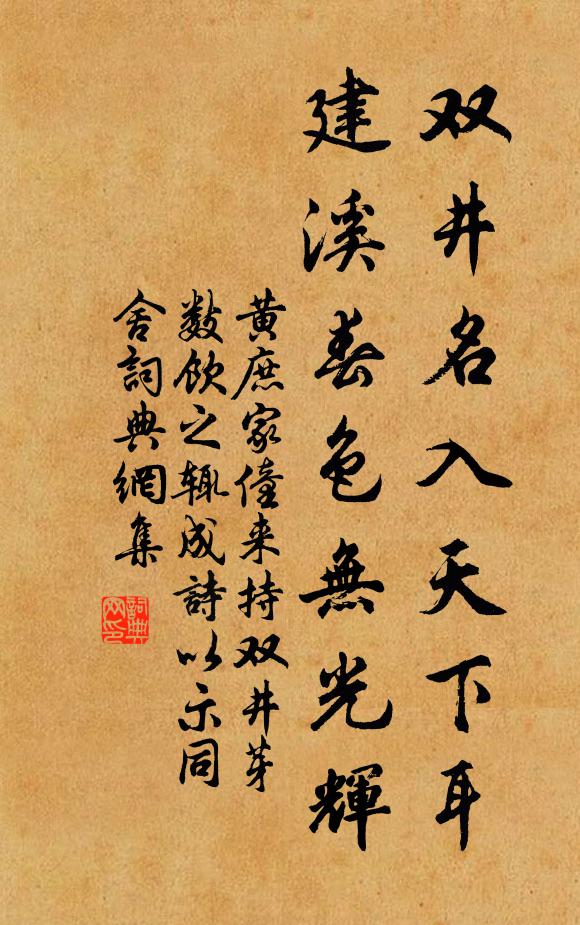 双井名入天下耳
建溪春色無光輝
黄庶家僮来持双井芽
数飲之輒成詩以示同
舍詞典網集
詞典網印